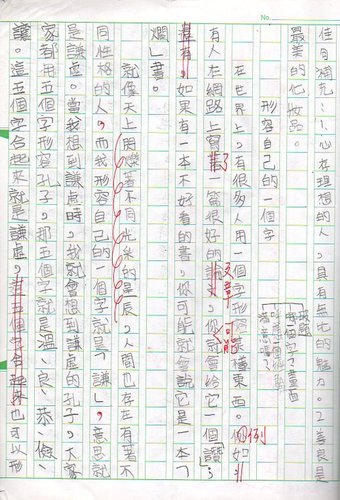 No.
佳句補充:1.心存理想的人,具有無比的魅力。2.善良是
最美的化妝品。
形容自己的一個字
在世界上,有很多人用一個字形容某種東西。例如:
有人在網路上寫了一篇很好的文章,你可能就會給它一個「讚」;
還有,如果有一本不好看的書,你可能就會說它是一本「
爛」書。
就像天上閃爍著不同光采的星辰,人間也存在有著不
同性格的人,而我形容自己的一個字就是「謙」,意思就
是謙虛。當我想到謙虛時,我就會想到謙虛的孔子,大
家都用五個字形容孔子,那五個字就是溫、良、恭、儉、
讓。這五個字合起來就是謙虛,這五個字合起來也可以形